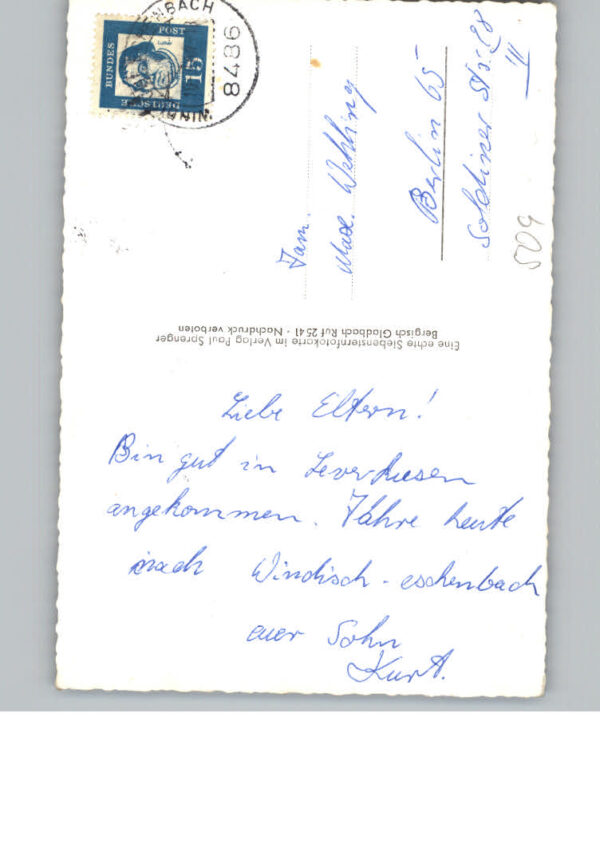 ENBACH
8486
WIN
DEUTSCHE
BUNDES
POST
15
Fam.
Max. Wehling
Berlin 65
Soldiner Str. 28
III
509
Eine echte Siebensternfotokarte im Verlag Paul Sprenger
Bergisch Gladbach Ruf 2541 - Nachdruck verboten
Liebe Eltern!
Bin gut in Leverkusen
angekommen. Fahre heute
nach Windisch-eschenbach
euer Sohn
Kurt.